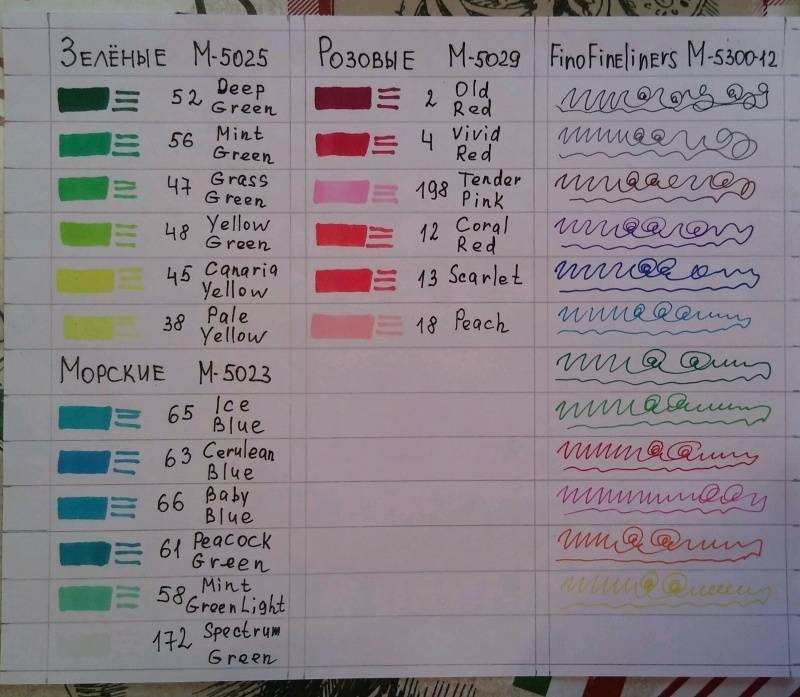 Зелёные М-5025
52 Deep
Green
56 Mint
Green
47 Grass
Green
48 Yellow
Green
45 Canaria
Yellow
38 Pale
Yellow
Морские М-5023
65 Ice
Blue
63 Cerulean
Blue
66 Baby
Blue
61 Peacock
Green
58 Mint
Green Light
172 Spectrum
Green
Розовые М-5029
2 Old
Red
4 Vivid
Red
198 Tender
Pink
12 Coral
Red
13 Scarlet
18 Peach
FinoFineliners М-5300-12